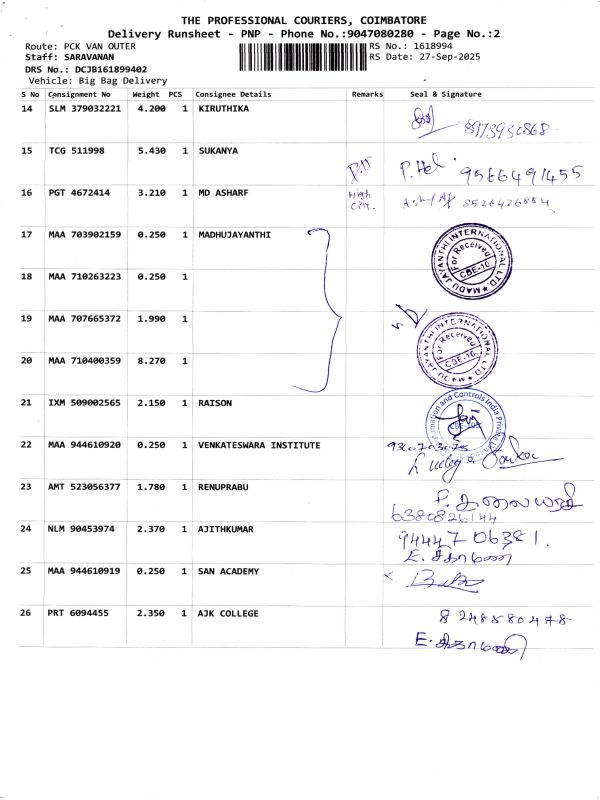 THE PROFESSIONAL COURIERS, COIMBATORE
Delivery Runsheet - PNP - Phone No.:9047080280 - Page No.:2
Route: PCK VAN OUTER
RS No.: 1618994
Staff: SARAVANAN
RS Date: 27-Sep-2025
DRS No.: DCJB161899402
Vehicle: Big Bag Delivery
S No Consignment No Weight PCS Consignee Details Remarks Seal & Signature
14 SLM 379032221 4.200 1 KIRUTHIKA
8973930868
15 TCG 511998 5.430 1 SUKANYA
9566491455
16 PGT 4672414 3.210 1 MD ASHARF High
8526426884
17 MAA 703902159 0.250 1 MADHUJAYANTHI
MADU JAYANTHI INTERNATIONAL LTD.
For Received
CBE-16.
18 MAA 710263223 0.250 1
19 MAA 707665372 1.990 1
MADU JAYANTHI INTERNATIONAL LTD.
For Received
CBE-16.
20 MAA 710400359 8.270 1
21 IXM 509002565 2.150 1 RAISON
and Controls India Private
22 MAA 944610920 0.250 1 VENKATESWARA INSTITUTE
23 AMT 523056377 1.780 1 RENUPRABU
6380826144
24 NLM 90453974 2.370 1 AJITHKUMAR
9444706381.
25 MAA 944610919 0.250 1 SAN ACADEMY
26 PRT 6094455 2.350 1 AJK COLLEGE
8248580478